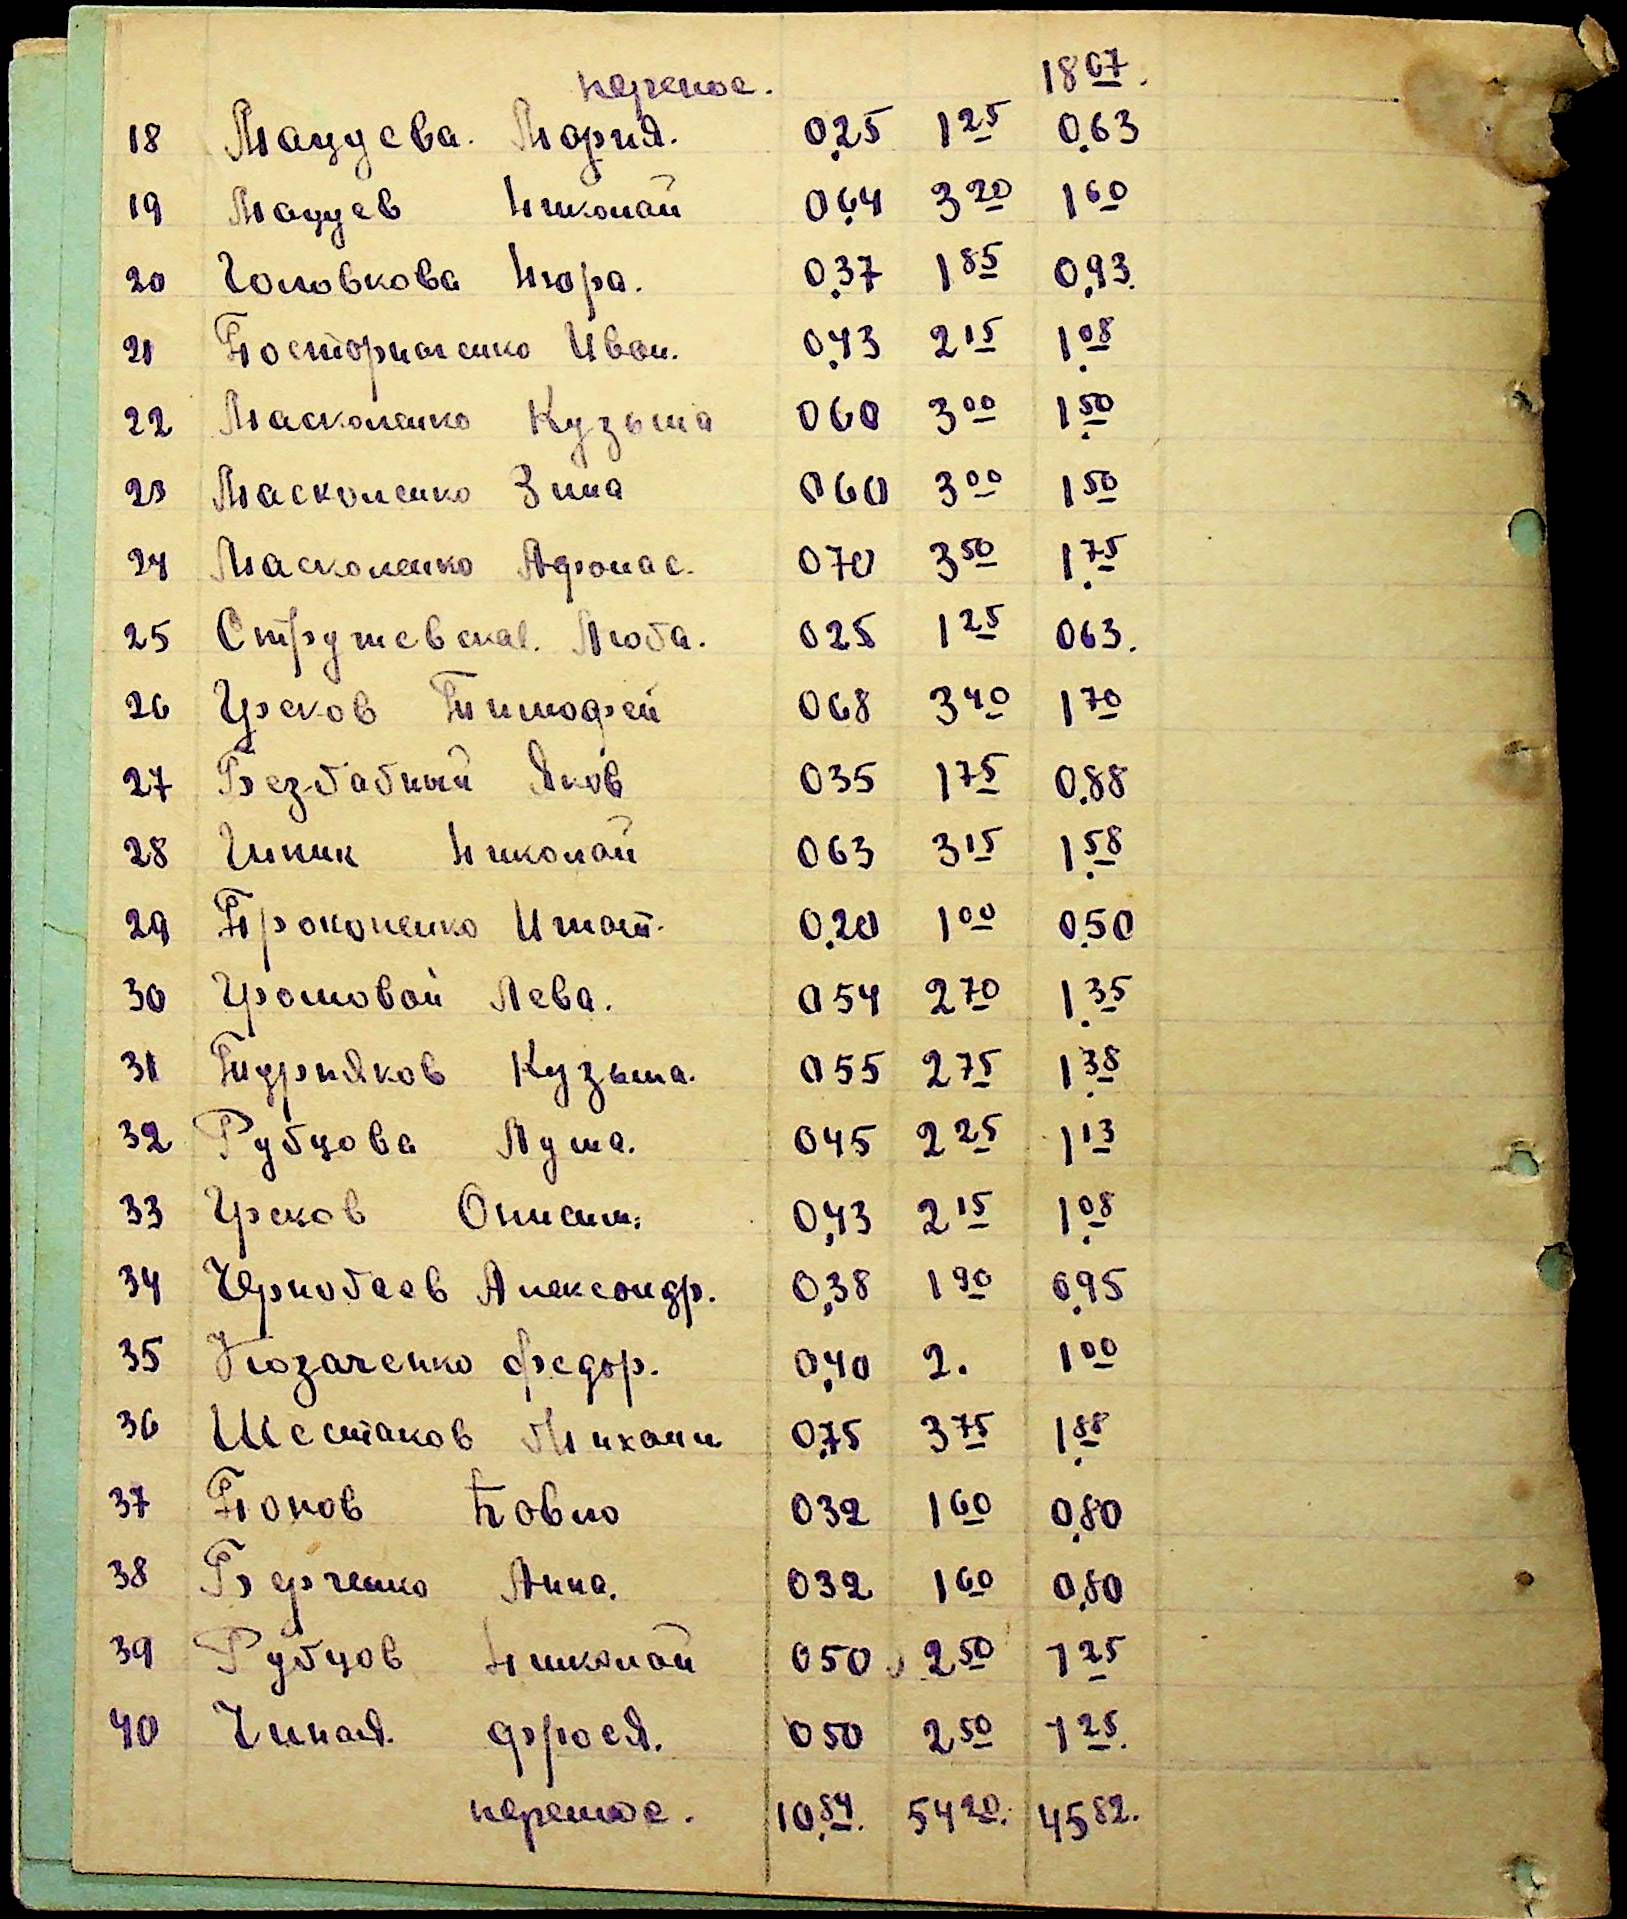 перенос. 18 07.
18 Мацуева. Мария. 0,25 1 25 0,63
19 Мацуев Николай 0,64 3 20 1 60
20 Головкова Нюра. 0,37 1 85 0,93.
21 Иван. 0,43 2 15 1,08
22 Масколенко Кузьма 0 60 3 00 1,50
23 Масколенко Зина 0 60 3 00 1 50
24 Масколенко Афонас. 0 70 3 50 1,75
25 Люба. 0 25 1 25 0 63.
26 Греков Тимофей 0 68 3 40 1 70
27 Безбабный Яков 0 35 1 75 0,88
28 Николай 0 63 3 15 1,58
29 Прокопенко Игнат. 0,20 1 00 0,50
30 Громовой Лева. 0 54 2 70 1,35
31 Пудряков Кузьма. 0 55 2 75 1,38
32 Рубцова Луша. 0 45 2 25 1 13
33 Греков Онисим. 0,43 2 15 1,08
34 Чернобаев Александр. 0,38 1 90 0,95
35 Козаченко Федор. 0,40 2. 1 00
36 Шестаков Михаил 0,75 3 75 1,88
37 Попов Павло 0 32 1 60 0,80
38 Анна. 0 32 1 60 0,80
39 Рубцов Николай 0 50 2 50 1 25
40 Фрося. 0 50 2 50 1 25.
перенос. 10,84. 54 20. 45 82.